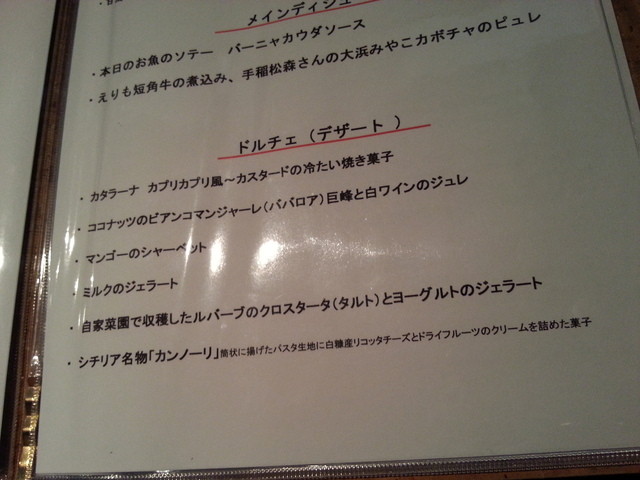 メインディシュ
・本日のお魚のソテー　バーニャカウダソース
・えりも短角牛の煮込み、手稲松森さんの大浜みやこカボチャのピュレ
ドルチェ（デザート ）
・カタラーナ　カプリカプリ風～カスタードの冷たい焼き菓子
・ココナッツのビアンコマンジャーレ（ババロア）巨峰と白ワインのジュレ
・マンゴーのシャーベット
・ミルクのジェラート
・自家菜園で収穫したルバーブのクロスタータ（タルト）とヨーグルトのジェラート
・シチリア名物「カンノーリ」筒状に揚げたパスタ生地に白糠産リコッタチーズとドライフルーツのクリームを詰めた菓子